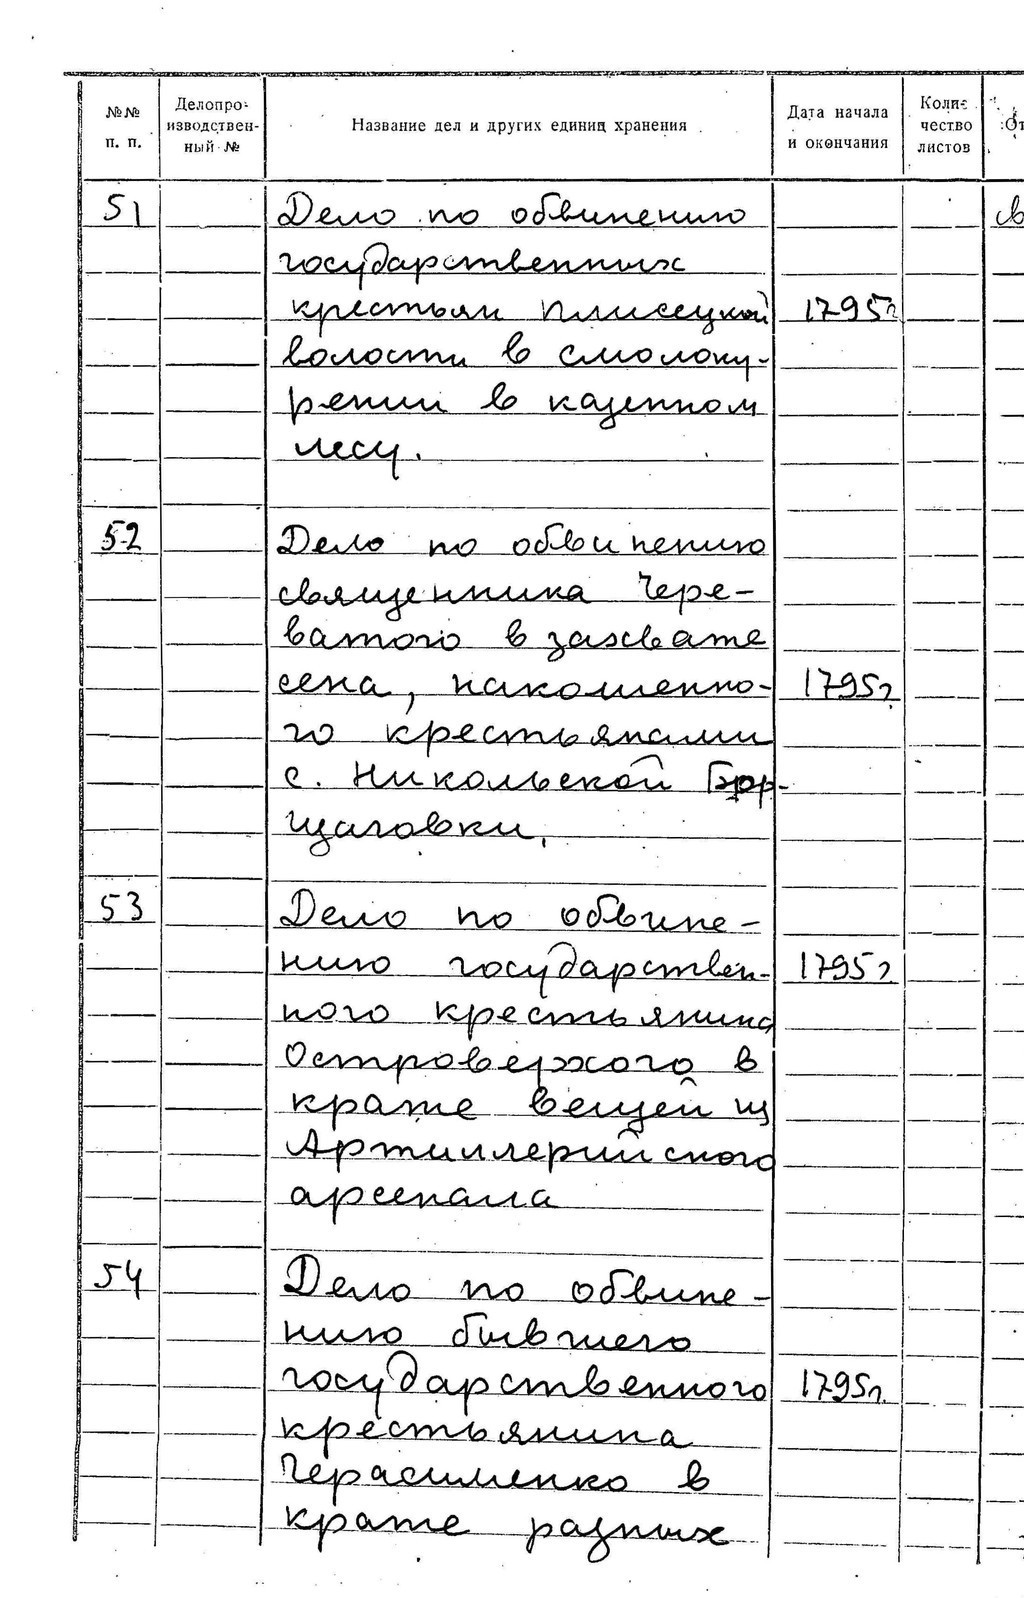 №№ п. п.
Делопро-
изводствен-
ный №
Название дел и других единиц хранения
Дата начала
и окончания
Коли-
чество
листов
От
51
Дело по обвинению
государственных
крестьян Плисецкой 1795г
волости в смолоку-
рении в казенном
лесу.
52
Дело по обвинению
священника Чере-
ватого в захвате
сена, накошенно- 1795г
го крестьянами
с. Никольской Бор-
щаговки.
53
Дело по обвине-
нию государствен- 1795г
ного крестьянина
Островерхого в
краже вещей из
Артиллерийского
арсенала
54
Дело по обвине-
нию бывшего
государственного 1795г.
крестьянина
Герасименко в
краже разных